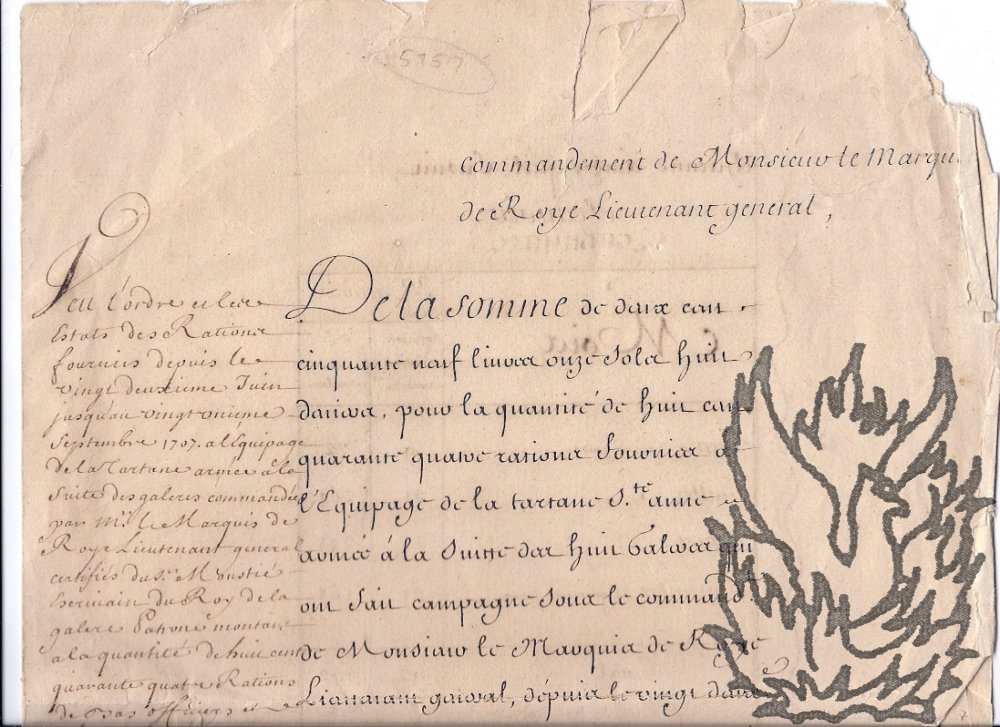 5151
commandement de Monsieur le Marqu
de Roye Lieutenant general,
Veu l'ordre et les
Estats des Rations
fournies depuis le
vingt deuxieme Juin
jusqu'au vingt onieme
Septembre 1707. a l'Équipage
de la Tartane armée a la
suite des galeres commandées
par Mr. le Marquis de
Roye Lieutenant general
certifiés du Sr. Moustié
Escrivain du Roy de la
galere Patrone montant
a la quantité de huit cent
quarante quatre Rations
de bas officiers et
De la somme de deux cent
cinquante neuf livres onze sols huit
deniers, pour la quantité de huit cent
quarante quatre rations fournies
l'Equipage de la tartane S.te anne
armée á la Suitte des huit Galeres qui
ont fait campagne sous le command.t
de Monsieur le Marquis de Roye
Lieutenant general, depuis le vingt deux